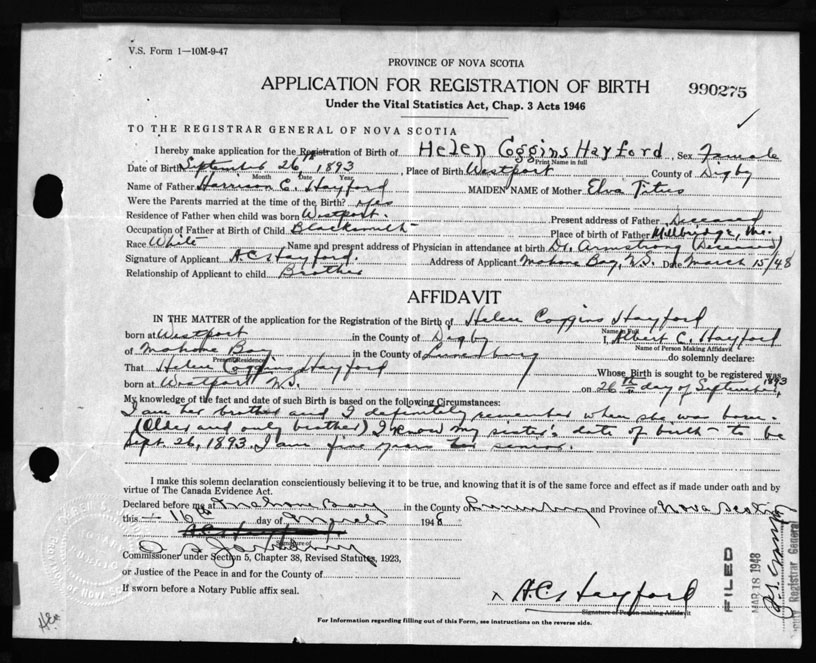 V.S. Form 1—10M-9-47
PROVINCE OF NOVA SCOTIA
APPLICATION FOR REGISTRATION OF BIRTH 990275
Under the Vital Statistics Act, Chap. 3 Acts 1946
TO THE REGISTRAR GENERAL OF NOVA SCOTIA
I hereby make application for the Registration of Birth of Helen Coggins Hayford, Sex Female
Print Name in full
Date of Birth September 26th, 1893, Place of Birth Westport County of Digby
Month Date Year
Name of Father Harrison C. Hayford MAIDEN NAME of Mother Elva Titus
Were the Parents married at the time of the Birth? yes
Residence of Father when child was born Westport. Present address of Father Deceased
Occupation of Father at Birth of Child Blacksmith Place of birth of Father Millbridge, Me.
Race White Name and present address of Physician in attendance at birth Dr. Armstrong (Deceased)
Signature of Applicant A.C. Hayford. Address of Applicant Mahone Bay, N.S. Date March 15/48
Relationship of Applicant to child Brother
AFFIDAVIT
IN THE MATTER of the application for the Registration of the Birth of Helen Coggins Hayford
Name in Full
born at Westport in the County of Digby I, Albert C. Hayford
Name of Person Making Affidavit
of Mahone Bay in the County of Lunenburg do solemnly declare:
Present Residence
That Helen Coggins Hayford Whose Birth is sought to be registered was
born at Westport N.S. on 26th day of September, 1893
My knowledge of the fact and date of such Birth is based on the following Circumstances:
I am her brother and I definitely remember when she was born.
(Older and only brother) I know my sister's date of birth - to be
Sept. 26, 1893. I am five years her senior.
I make this solemn declaration conscientiously believing it to be true, and knowing that it is of the same force and effect as if made under oath and by
virtue of The Canada Evidence Act.
Declared before me at Mahone Bay in the County of Lunenburg and Province of Nova Scotia
this 16th day of March 1948
Signature of
Commissioner under Section 5, Chapter 38, Revised Statutes, 1923,
or Justice of the Peace in and for the County of
If sworn before a Notary Public affix seal.
x A.C. Hayford
Signature of Person making Affidavit
For Information regarding filling out of this Form, see instructions on the reverse side.
FILED
MAR 18 1948
Registrar General